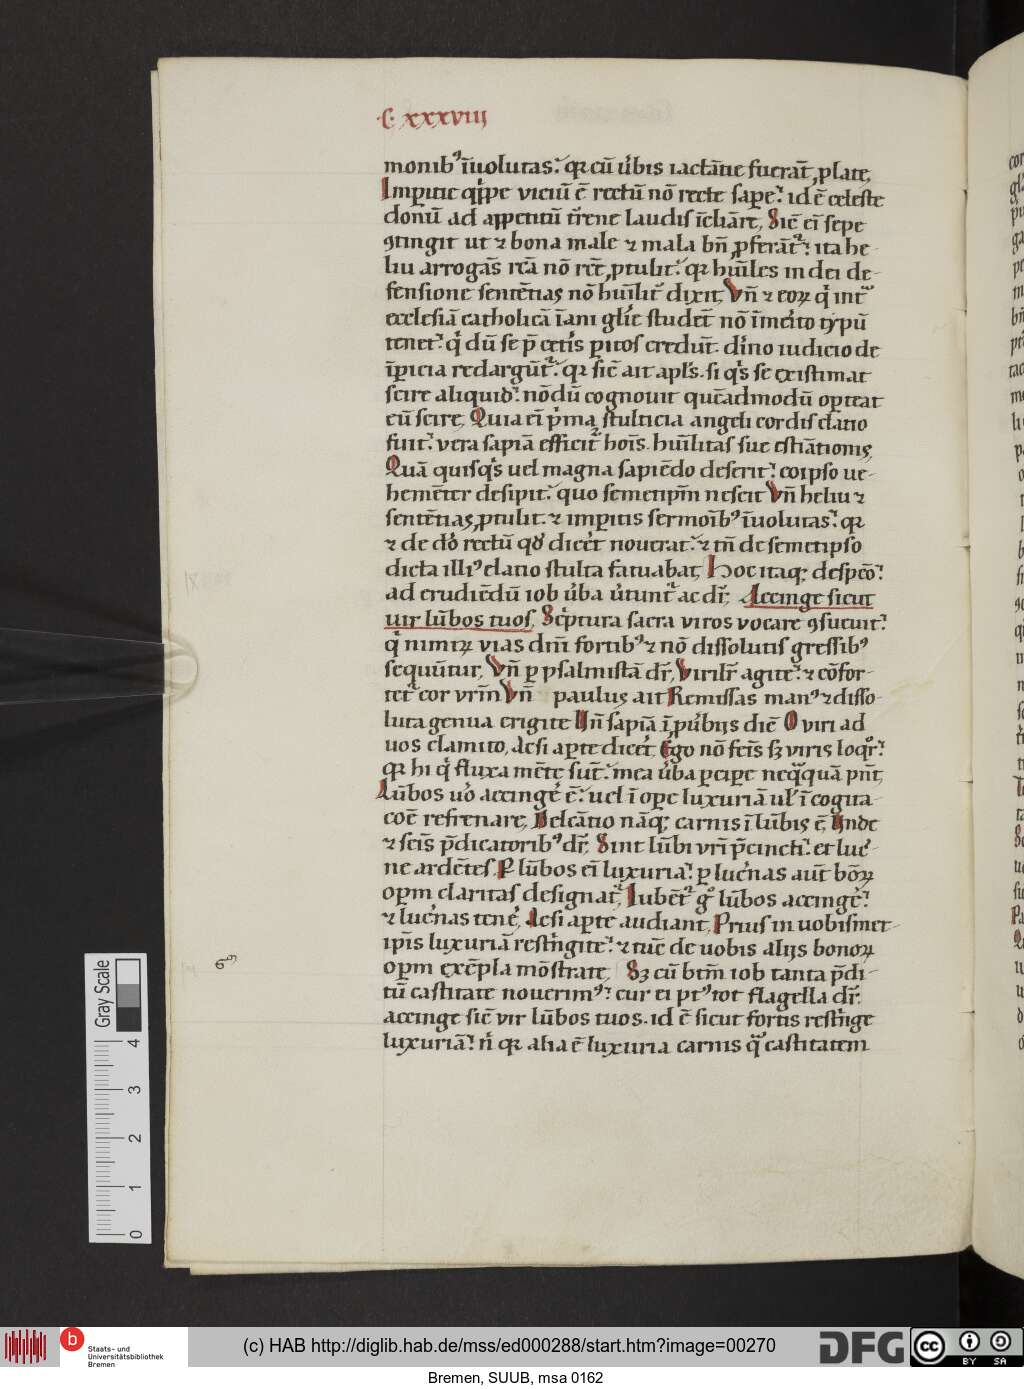 C xxxviii
monibꝰ ĩuolutas. qꝛ cũ ũbis iactãtie fuerãt ꝓlate,
Imꝑitie qͥppe viciũ ē rectũ nō recte sapere. id ē celeste
donũ ad appetitũ t̃rene laudis ĩcliãre, Siĉ ei̅ sepe
ꝯtingit ut ⁊ bona male ⁊ mala bn̅ ꝓferãt᷑. ita he
liu arrogãs rc̃ã nō rc̃e ꝓtulit. qꝛ hũiles in dei de-
fensione sentẽtias nō hũilit̾ dixit, Vn̅ ⁊ eoꝝ qͥ intᷓ
ecclesiã catholicã ĩani gl̃ie studet̅ nō ĩmẽito typũ
tenet. qͥ dũ se p̃ cet̾is ꝑitos credũt. diͥno iudicio de
ĩꝑicia redargũt᷑. qꝛ siĉ ait apl̃s. si qͥs se existimat
scire aliquid. nōdũ cognouit quẽadmodũ oꝑteat
eũ scire, Quia ei̅ pͥma stulticia angeli cordis elatio
fuit. vera sapiã efficit᷑ hoi̅s. hũilitas sue estiãtionis,
Quã quisqͥs uel magna sapiẽdo deserit. eo ipso ue-
hemẽter desipit. quo semetipm̅ nescit Vn̅ heliu ⁊
sentẽtias ꝓtulit. ⁊ imꝑitis sermoĩbꝰ ĩuolutas. qꝛ
⁊ de dō rectũ qđ dicēt nouerat. ⁊ tn̅ de semetipso
dicta illiꝰ elatio stulta fatuabat, Hoc itaqꝫ despcō.
ad erudiẽdũ iob ũba ũtunt᷑ ac dr̅, Accinge sicut
uir lũbos tuos, Scͥptura sacra viros vocare ꝯsueuit.
qͥ nimiꝝ vias dn̅i fortibꝰ ⁊ nō dissolutis gressibꝰ
sequũtur, Vn̅ ꝑ psalmistã dr̅, Viril̅r agite. ⁊ cōfor-
tet᷑ cor vrm̅ Vn̅ paulus ait Remissas manꝰ ⁊ disso-
luta genua erigite Vn̅ sapiã ĩ ꝓũbijs diē O viri ad
uos clamito, Acsi aꝑte dicēt, Ego nō feĩs sꝫ viris loqͦr.
qꝛ hi qͥ fluxa mẽte sũt. mea ũba ꝑciꝑe neqͣquã pn̅t,
Lũbos uͦo accingē ē. uel ĩ oꝑe luxuriã ul̅ ĩ cogita
coē refrenare, Delcãtio nãqꝫ carnis ĩ lũbis ē, Unde
⁊ sc̅is p̃dicatoribꝰ dr̅, Sint lũbi vrĩ p̃cincti. et luc̾-
ne ardẽtes, P lũbos ei̅ luxuria. ꝑ luc̾nas aut̅ bōꝝ
oꝑm claritas designat᷑, Iubēt᷑ gͦ lũbos accingē.
⁊ luc̾nas tenē, Acsi aꝑte audiant, Prius in uobismet-
ipĩs luxuriã restͥngite. ⁊ tũc de uobis alijs bonoꝝ
oꝑm exẽpla mōstrate, Sꝫ cũ btm̅ iob tanta p̃di-
tũ castitate nouerimꝰ. cur ei pꝰ tot flagella dr̅.
accinge siĉ vir lũbos tuos. id ē sicut fortis restͥnge
luxuriã. nͥ qꝛ alia ē luxuria carnis qͣ castitatem
Gray Scale
4
3
2
1
0
b
Staats- und
Universitätsbibliothek
Bremen
(c) HAB http://diglib.hab.de/mss/ed000288/start.htm?image=00270
DFG
cc
BY SA
Bremen, SUUB, msa 0162